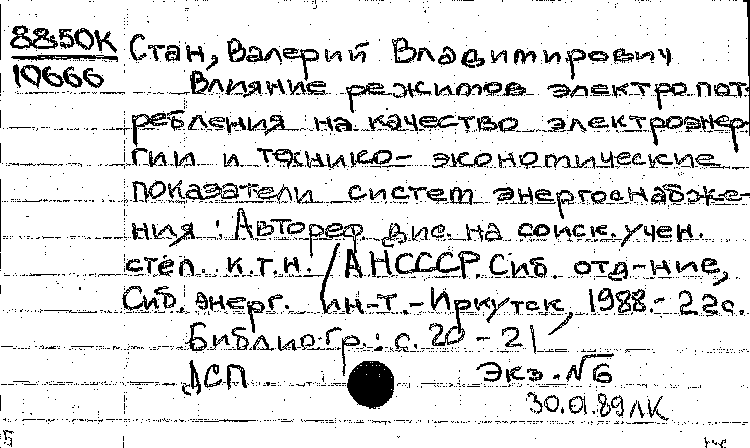 88:50К Стан, Валерий Владимирович
10666 Влияние режимов электропот-
ребления на качество электроэнер-
гии и технико-экономические
показатели систем энергоснабже-
ния : Автореф дис. на соиск. учен.
степ. к.т.н. / АН СССР. Сиб. отд-ние,
Сиб. энерг. ин-т. - Иркутск, 1988. - 22с.
Библиогр.: с. 20 - 21
ДСП. Экз. №6
30.01.89 ЛК